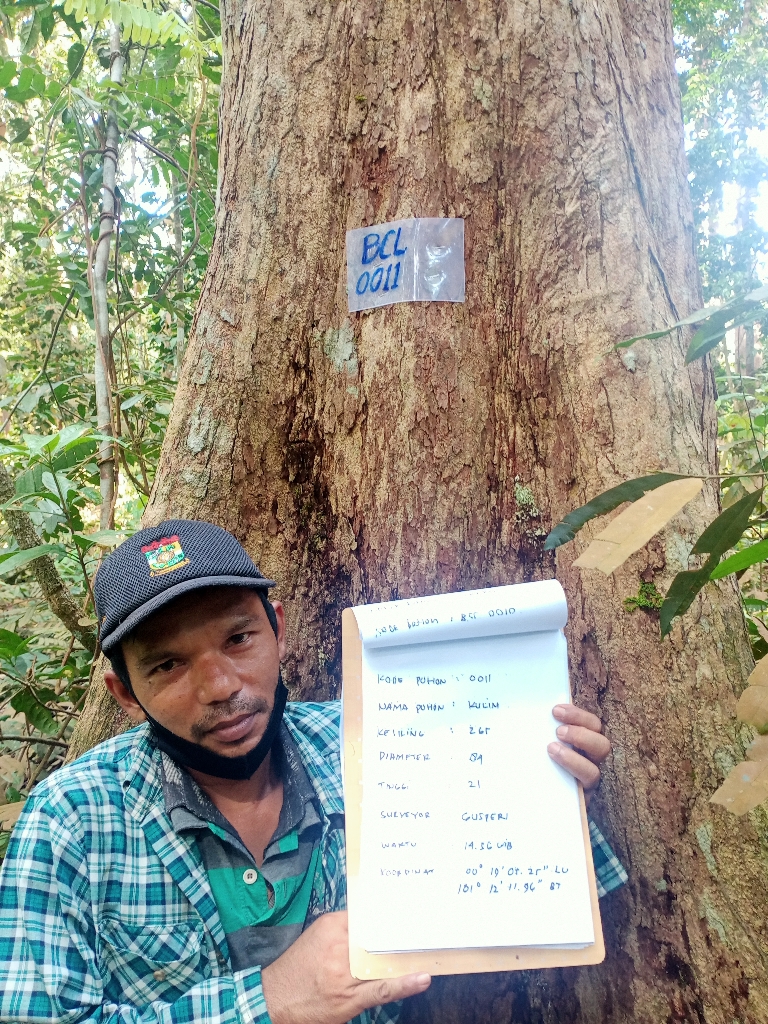 BCL
0011
KODE POHON : BCL 0010
KODE POHON : 0011
NAMA POHON : KULIM
KELILING : 265
DIAMETER : 84
TINGGI : 21
SURVEYOR GUSPERI
WAKTU 14.56 WIB
KOORDINAT 00° 19' 03.25" LU
101° 12' 11.96" BT